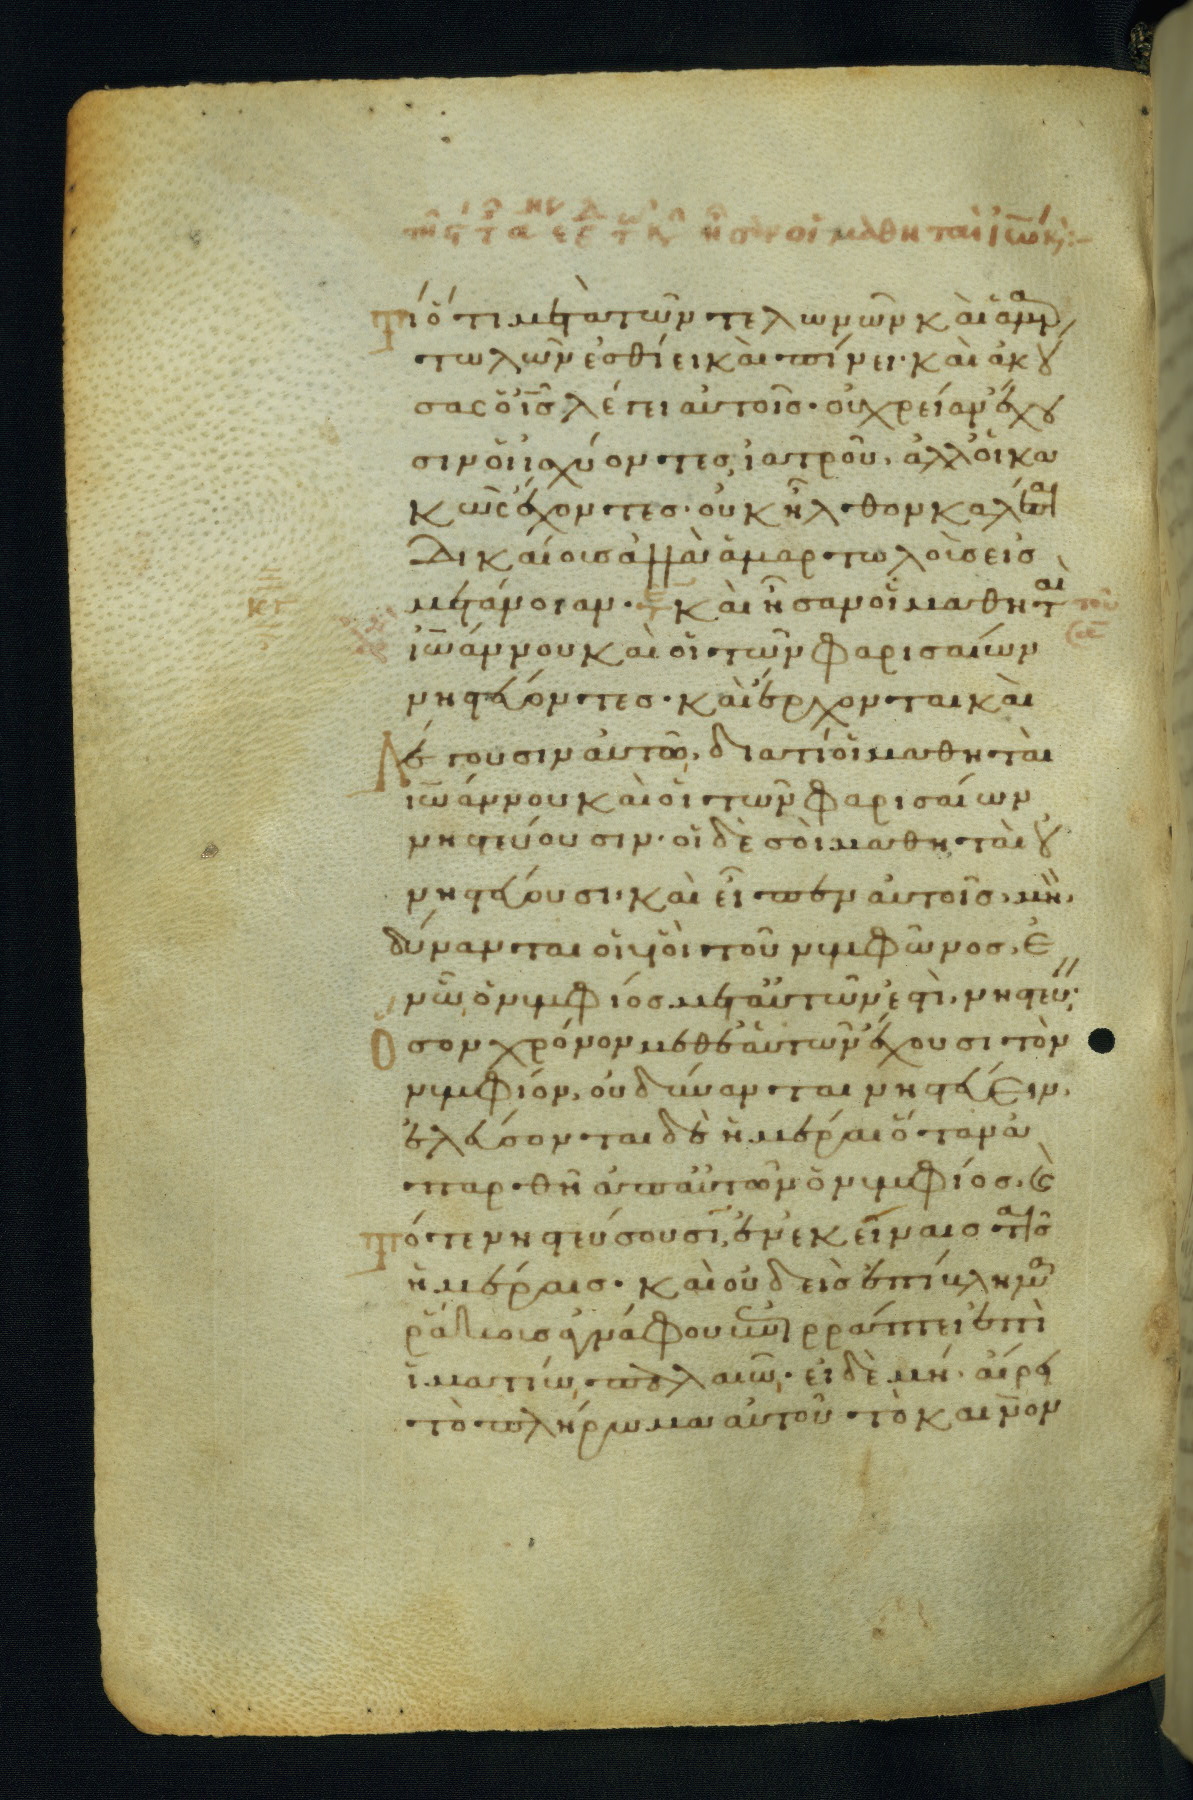 ἦσαν οἱ μαθηταὶ ἰω κ,:-
Τί ὅτι μετὰ τῶν τελωνῶν καὶ ἁμαρ
τωλῶν ἐσθίει καὶ πίνει· καὶ ἀκού
σας ὁ ἰς λέγει αὐτοῖς· οὐ χρείαν ἔχου
σιν οἱ ἰσχύοντες ἰατροῦ, ἀλλ' οἱ κα
κῶς ἔχοντες· οὐκ ἦλθον καλέσαι
δικαίους ἀλλὰ ἁμαρτωλοὺς εἰς
μετάνοιαν· καὶ ἦσαν οἱ μαθηταὶ
κγ
ἰωάννου καὶ οἱ τῶν φαρισαίων
νηστεύοντες· καὶ ἔρχονται καὶ
λέγουσιν αὐτῶ, διατί οἱ μαθηταὶ
ἰωάννου καὶ οἱ τῶν φαρισαίων
νηστεύουσιν· οἱ δὲ σοὶ μαθηταὶ οὐ
νηστεύουσι· καὶ εἶπεν αὐτοῖς, μὴ
δύνανται οἱ υἱοὶ τοῦ νυμφῶνος, ἐ
νῶ ὁ νυμφίος μετ' αὐτῶν ἐστὶ, νηστεύ·
Ὅσον χρόνον μεθ' ἑαυτῶν ἔχουσι τὸν
νυμφίον, οὐ δύνανται νηστεύειν,
ἐλεύσονται δὲ ἡμέραι ὅταν ἀ
παρθῆ ἀπ' αὐτῶν ὁ νυμφίος, καὶ
τότε νηστεύσουσιν ἐν ἐκείναις ταῖς
ἡμέραις· καὶ οὐδεὶς ἐπίβλημα
ῥάκους ἀγνάφου ἐπιρράπτει ἐπὶ
ἱματίω παλαιῶ· εἰ δὲ μή· αἴρει
τὸ πλήρωμα αὐτοῦ τὸ καινὸν